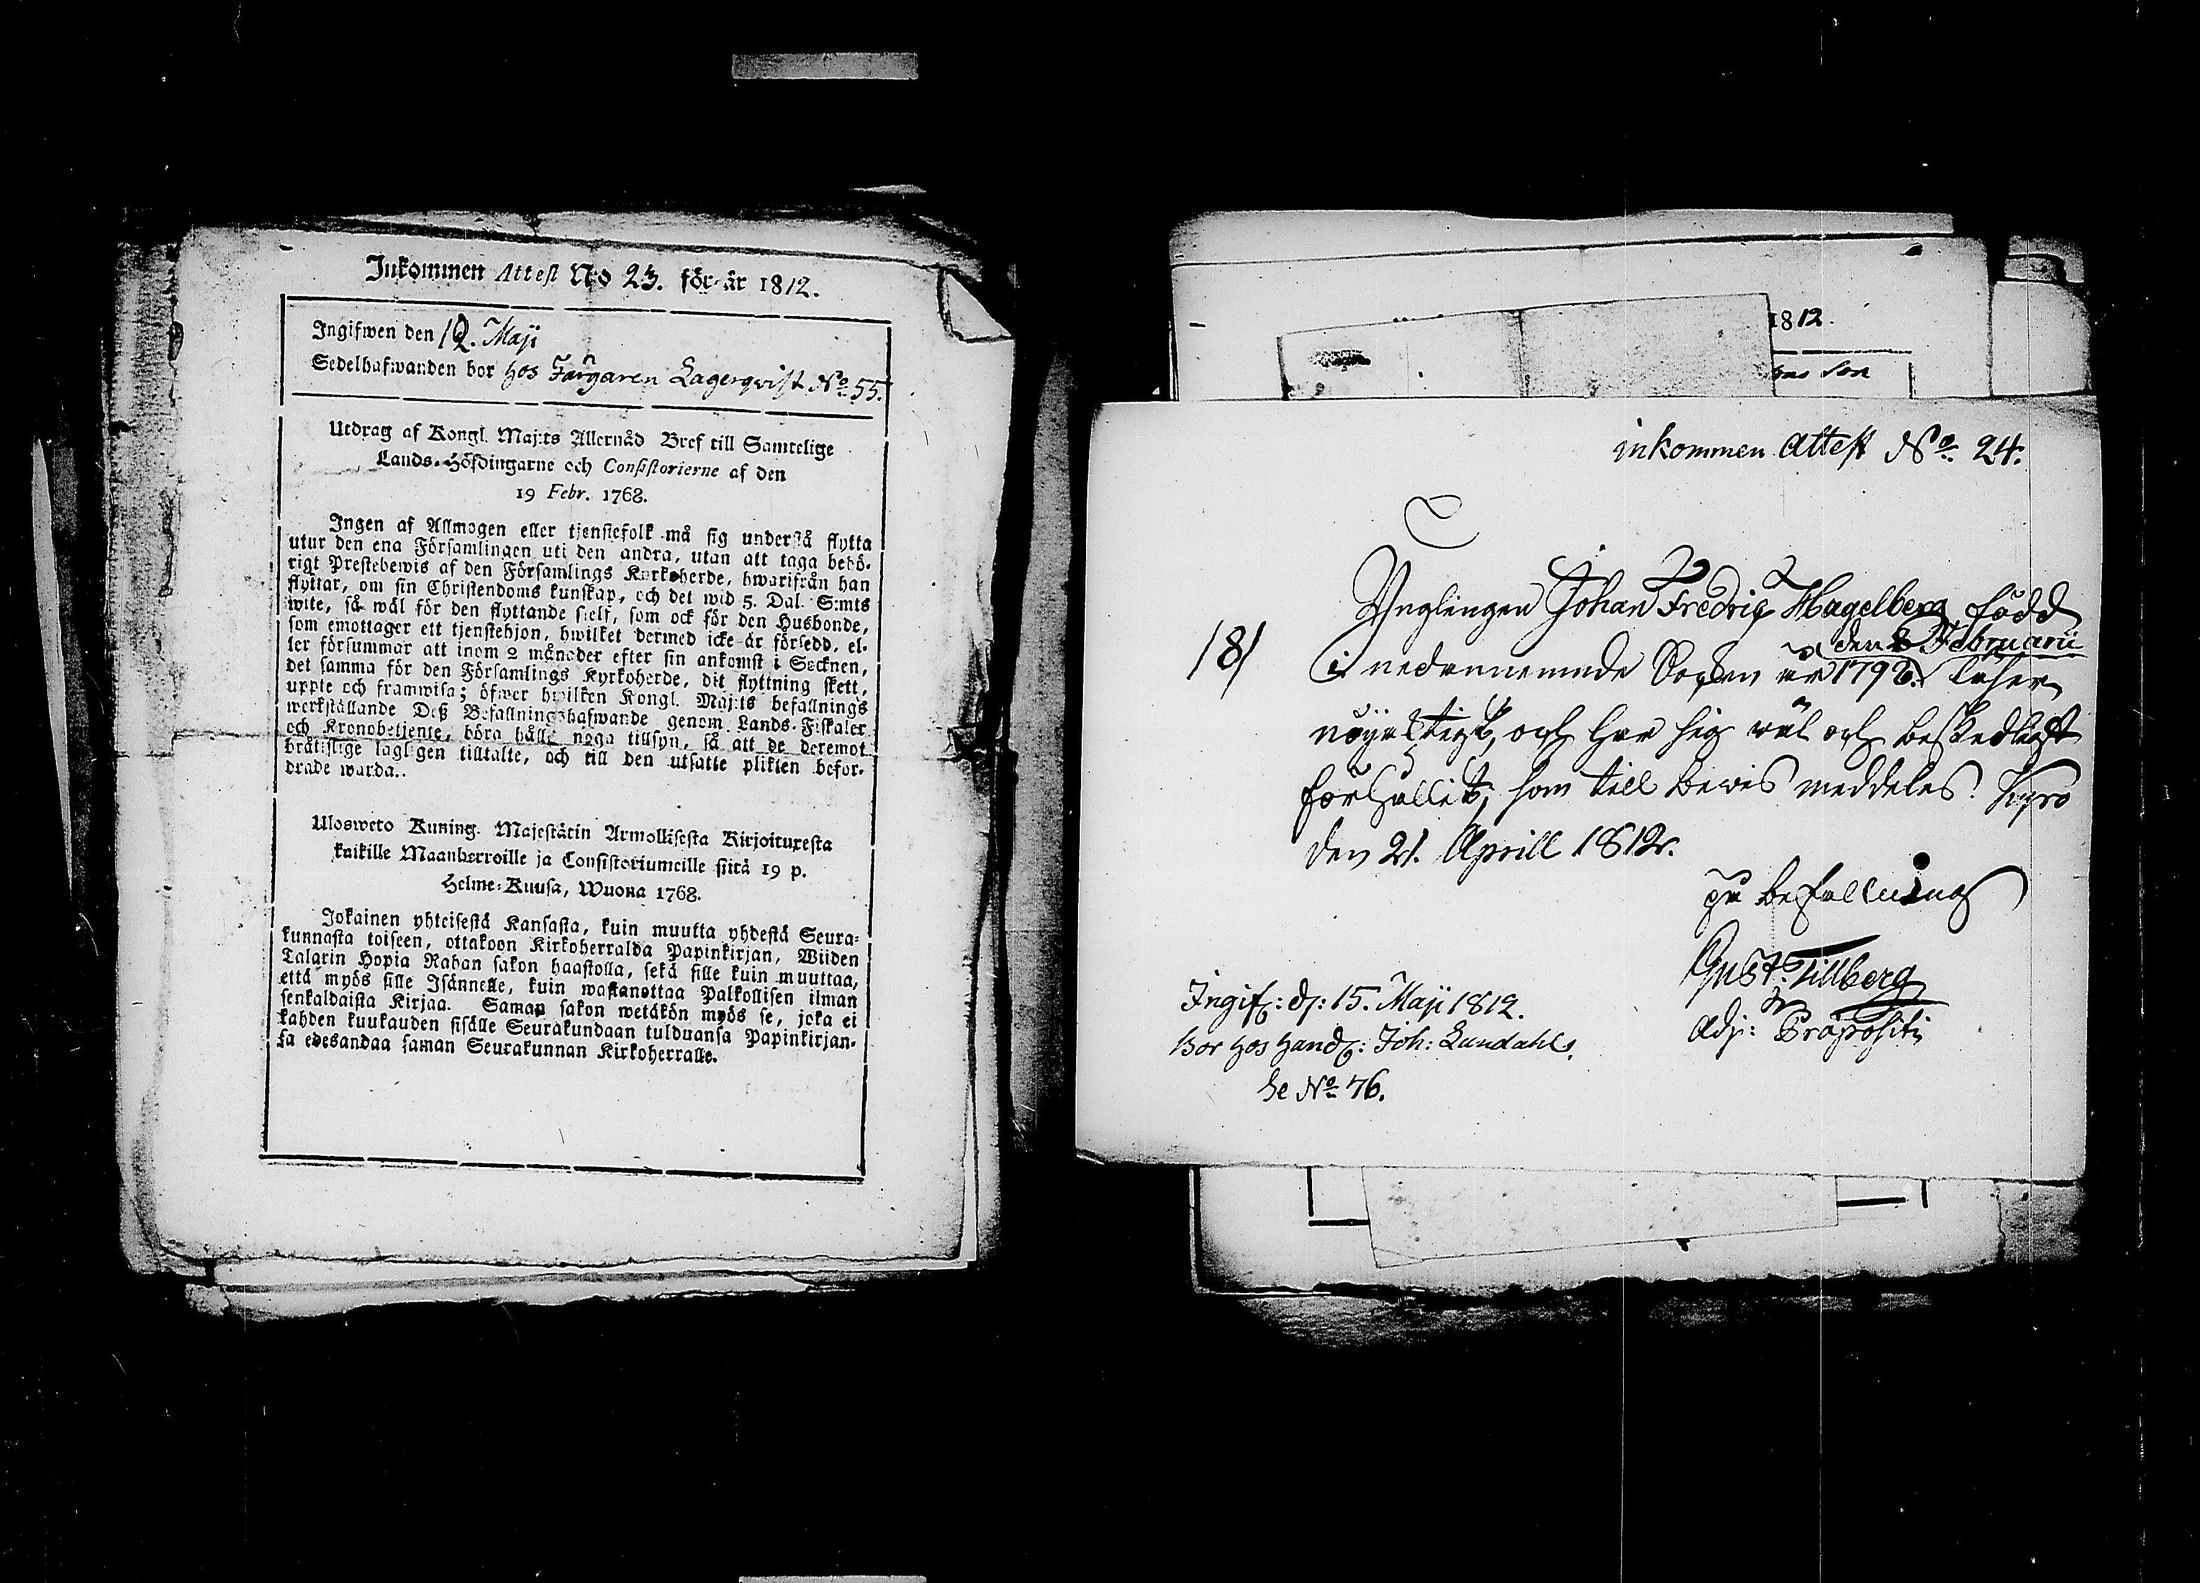 Inkommen Attest N:o 23. för år 1812.
Ingifwen den 12. Maji
Sedelhafwanden bor hos Färgaren Lagerqvist No 55.
Utdrag af Kongl. Maj:ts Allernåd Bref till Samtelige
Lands-Höfdingarne och Consistorierne af den
19 Febr. 1768.
Ingen af Allmogen eller tjenstefolk må sig understå flytta
utur den ena Församlingen uti den andra, utan att taga behö-
rigt Prestebewis af den Församlings Kyrkoherde, hwarifrån han
flyttar, om sin Christendoms kunskap, och det wid 5. Dal. S:mts
wite, så wäl för den flyttande sielf, som ock för den Husbonde,
som emottager ett tjenstehjon, hwilket dermed icke är försedd, el-
ler försummar att inom 2 månader efter sin ankomst i Socknen,
det samma för den Församlings Kyrkoherde, dit flyttning skett,
uppte och framwisa; öfwer hwilken Kongl. Maj:ts befallnings
werkställande Deß Befallningshafwande genom Lands-Fiskaler
och Kronobetjente, böra hålla noga tillsyn, så att de deremot
bråtslige lagligen tilltalte, och till den utsatte plikten befor-
drade warda.
Ulosweto Kuning. Majestätin Armollisesta Kirjoituxesta
kaikille Maanherroille ja Consistoriumeille siitä 19 p.
Helme-Kuusa, Wuona 1768.
Jokainen yhteisestä Kansasta, kuin muutta yhdestä Seura-
kunnasta toiseen, ottakoon Kirkoherralda Papinkirjan, Wiiden
Talarin Hopia Rahan sakon haastolla, sekä sille kuin muuttaa,
että myös sille Isännelle, kuin wastanottaa Palkollisen ilman
senkaldaista Kirjaa. Saman sakon wetäkön myös se, joka ei
kahden kuukauden sisälle Seurakundaan tulduansa Papinkirjan-
sa edesandaa saman Seurakunnan Kirkoherralle.
1812.
son
inkommen Attest No. 24.
Ynglingen Johan Fredric Hagelberg född
den 8 Februarii
181
i nedannemnde Socken år 1792. läser
nöjaktigt, och har sig wäl och beskedligt
förhållit; som till bewis meddeles. Kyro
den 21. Aprill 1812.
På befallning
Gust. Tillberg
Adj: Præpositi
Ingif: d: 15. Maji 1812.
Bor hos Hand: Joh: Lundahl
se No 76.